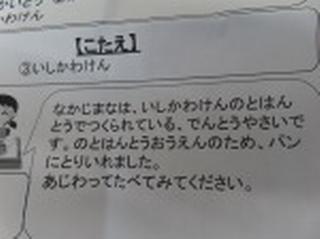 わけん
【こたえ】
③いしかわけん
なかじまなは、いしかわけんのとはん
とうでつくられている、でんとうやさいで
す。のとはんとうおうえんのため、パン
にとりいれました。
あじわってたべてみてください。